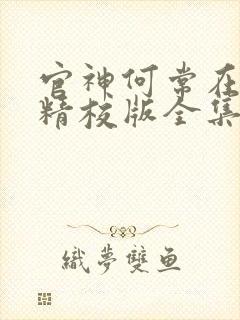 官神何常在
精校版全集
織夢雙鱼